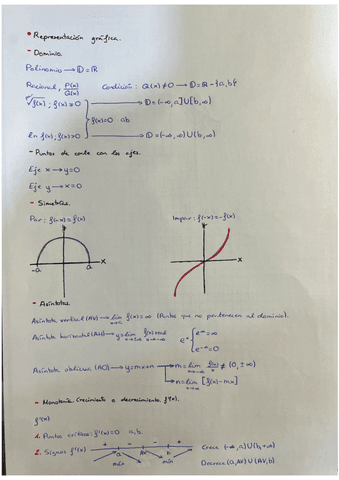 • Representación gráfica.
- Dominio
Polinomio → D=ℝ
Racional, P(x)/Q(x) Condición: Q(x)≠0 → D=ℝ-{a,b}
√f(x); f(x)≥0 → D=(-∞,a]U[b,∞)
f(x)=0 ab
ln f(x); f(x)>0 → D=(-∞, ∞)U(b,∞)
- Puntos de corte con los ejes.
Eje x → y=0
Eje y → x=0
- Simetrías.
Par: f(-x)=f(x) Impar: f(-x)=-f(x)
-a a x x
- Asíntotas
Asíntota vertical (AV) → lim f(x)=∞ (Puntos que no pertenecen al dominio).
Asíntota horizontal (AH) → y=lim f(x)
e^∞=∞
e^-∞=0
Asíntota oblicua (AO) → y=mx+n → m=lim f(x)/x ≠ (0,±∞)
→ n=lim [f(x)-mx]
- Monotonía. Crecimiento o decrecimiento. f'(x).
f'(x)
1. Puntos críticos: f'(x)=0 a,b.
2. Signos f'(x) + - - + Crece (-∞,a)U(b+∞)
a AV b
mín Decrece (a,AV)U(AV,b)